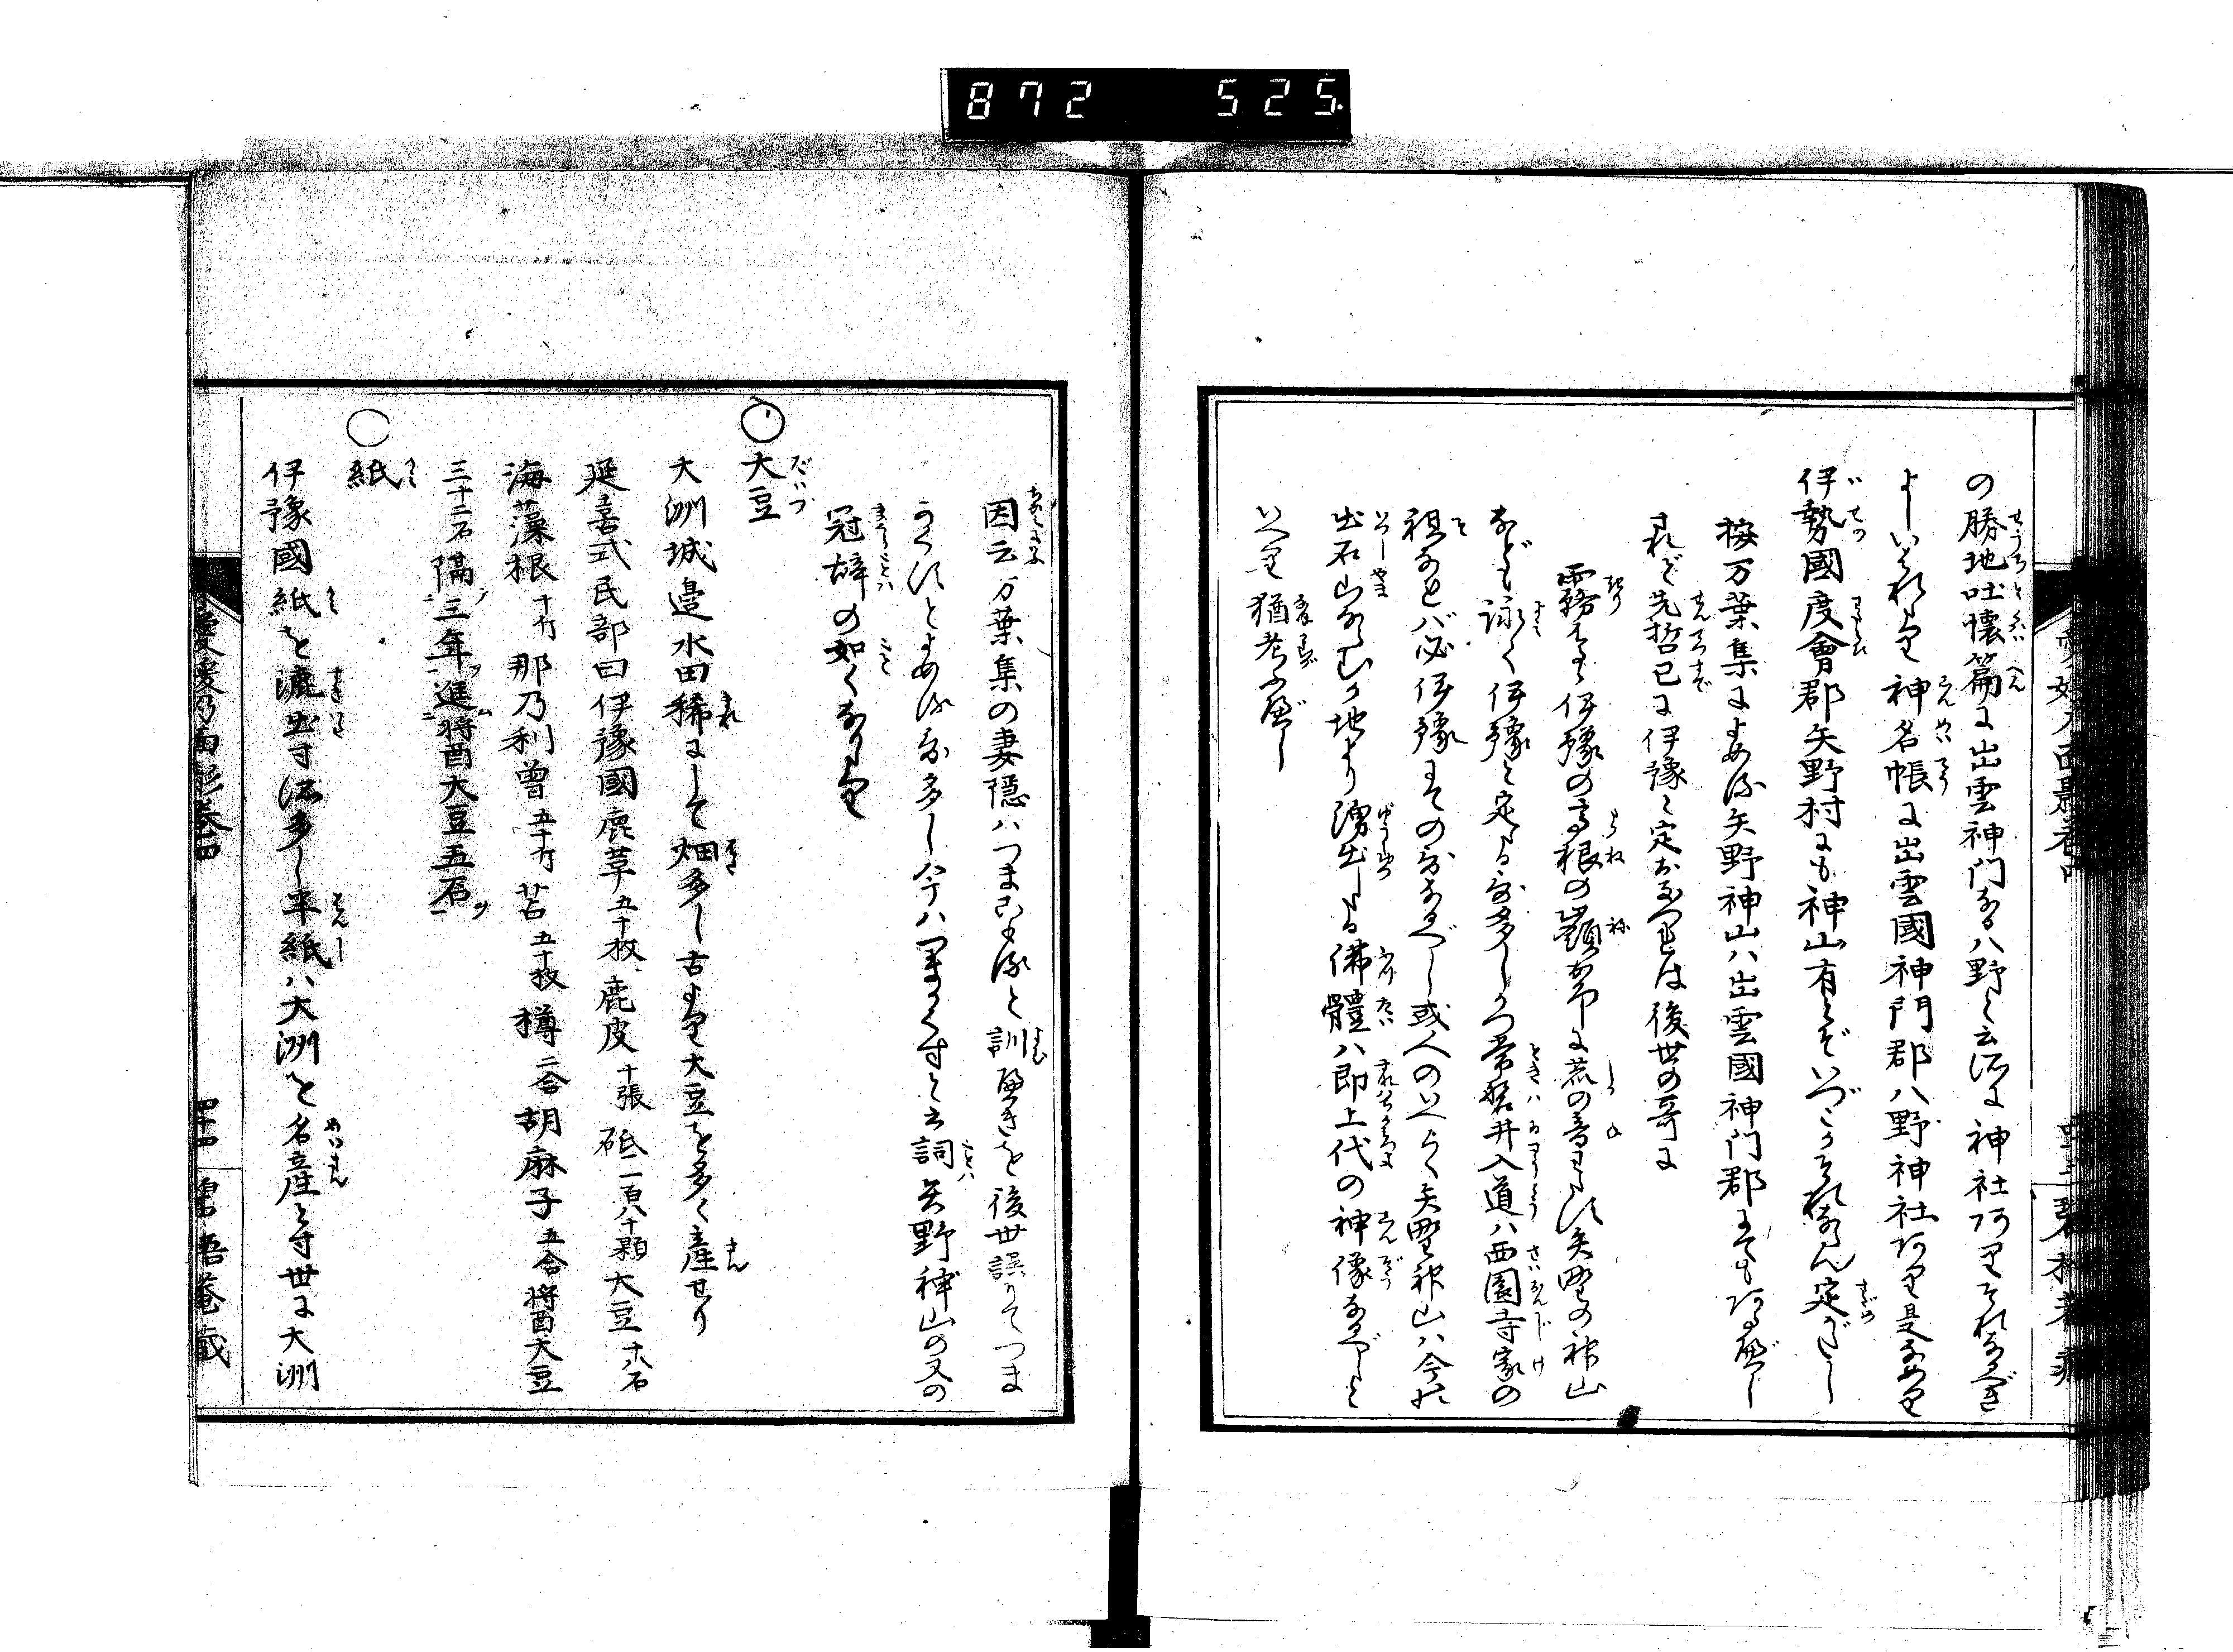 872 525
の勝地吐懐篇に出雲神門なる八野と云所に神社阿りそれなるべき
よしいはれたり神名帳に出雲國神門郡八野神社阿り是なめり
伊勢國度會郡矢野村にも神山有とぞいづこかそれならん定がたし
按万葉集によめる矢野神山ハ出雲國神門郡にても阿るべし
されど先哲已に伊豫と定おかれたれは後世の哥に
霧はるゝ伊豫の高根の
矢野の神山
なども詠く伊豫と定たる哥多しかつ常磐井入道ハ西園寺家の
祖なれバ必伊豫にての哥なるべし或人のいへらく矢野神山ハ今の
出石山ならむか地より湧出したる佛體ハ即上代の神像なるべしと
いへり猶考ふべし
因云万葉集の妻隠ハつまこもると訓べきを後世誤りてつま
かくすとよめる哥多し今ハつまかくすと云詞矢野神山の又の
冠辞の如くなりたり
○大豆
大洲城邉水田稀にして畑多し古より大豆を多く産せり
延喜式民部曰伊豫國鹿茸五十枚鹿皮十張砥二百八十顆大豆十八石
海藻根十斤那乃利曽五十斤苫五十枚樽二合胡麻子五合醤大豆
三十二石隔三年進醤大豆五石
○紙
伊豫國紙を漉出す所多し半紙ハ大洲を名産とす世に大洲
愛媛乃面影巻四
四十四
碧梧菴蔵